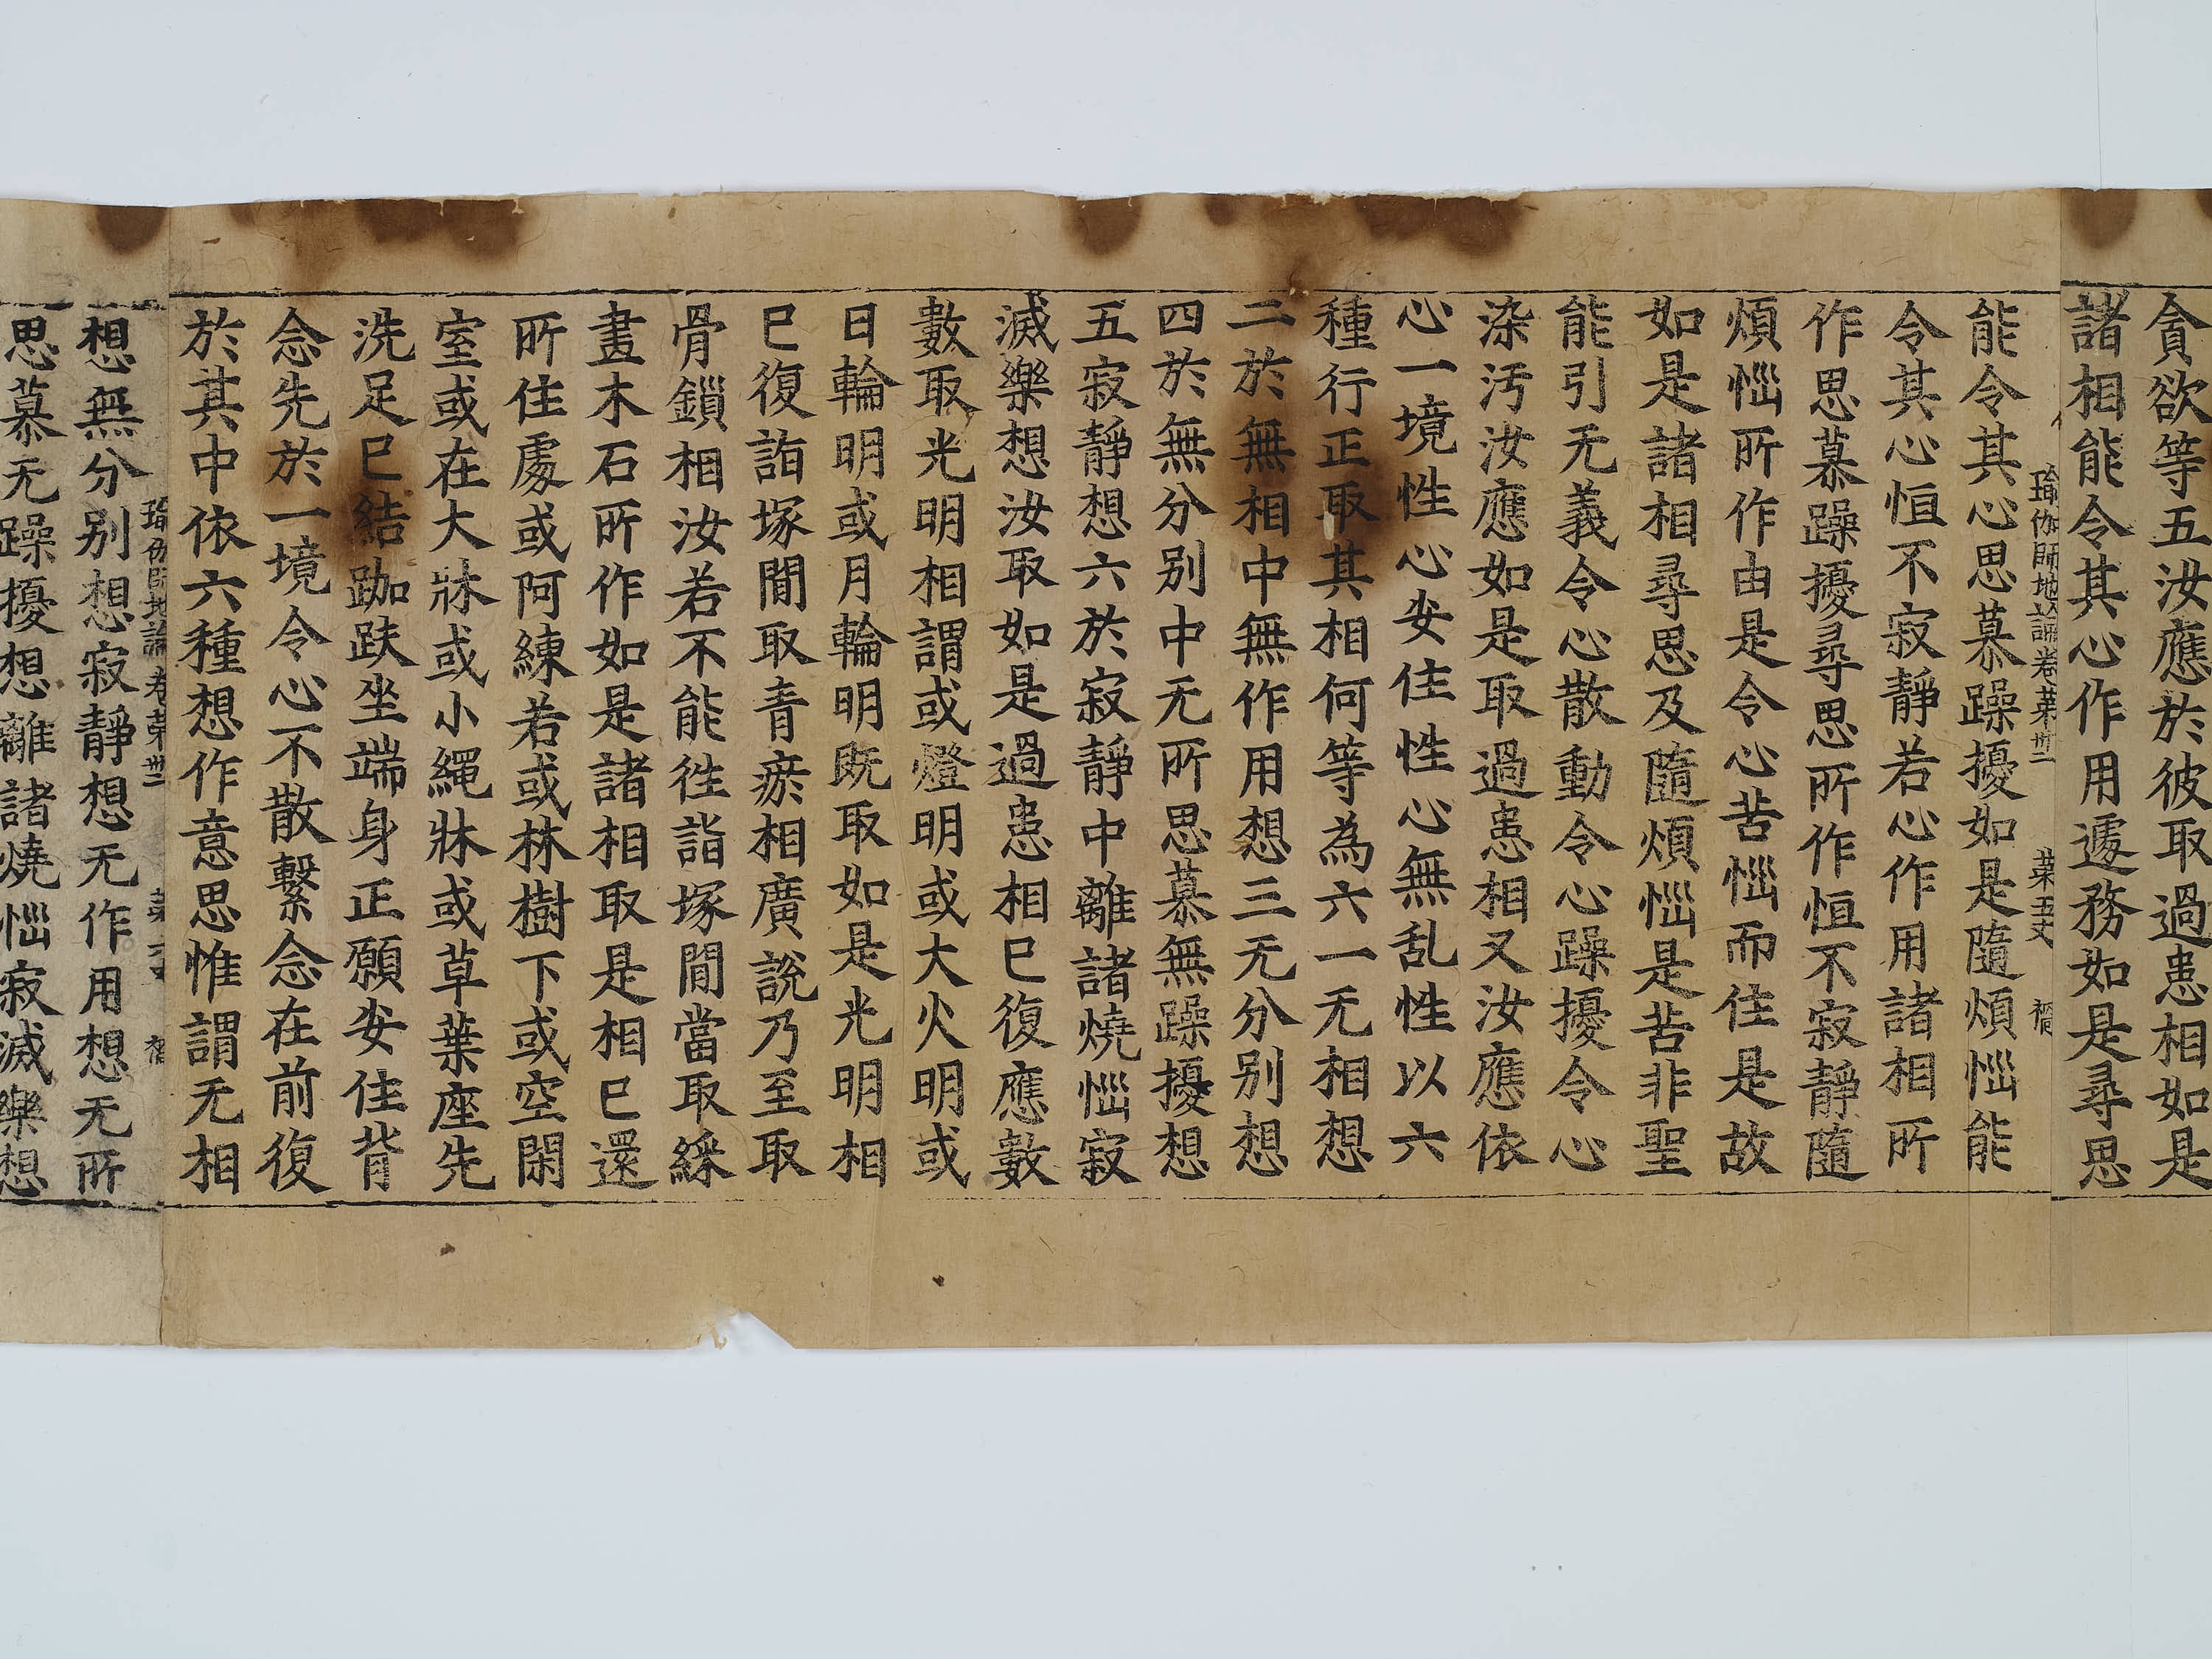 貪欲等五汝應於彼取過患相如是
諸相能令其心作用遽務如是尋思
瑜伽師地論卷苐卅二 苐五丈
能令其心思慕躁擾如是隨煩惱能
令其心恒不寂靜若心作用諸相所
作思慕躁擾尋思所作恒不寂靜隨
煩惱所作由是令心苦惱而住是故
如是諸相尋思及隨煩惱是苦非聖
能引无義令心散動令心躁擾令心
染汚汝應如是取過患相又汝應依
心一境性心安住性心無乱性以六
種行正取其相何等為六一无相想
二於無相中無作用想三无分別想
四於無分別中无所思慕無躁擾想
五寂靜想六於寂靜中離諸燒惱寂
滅樂想汝取如是過患相已復應數
數取光明相謂或燈明或大火明或
日輪明或月輪明既取如是光明相
已復詣塚間取青瘀相廣說乃至取
骨鎖相汝若不能往詣塚間當取綵
畫木石所作如是諸相取是相已還
所住處或阿練若或林樹下或空閑
室或在大牀或小繩牀或草葉座先
洗足已結跏趺坐端身正願安住背
念先於一境令心不散繫念在前復
於其中依六種想作意思惟謂无相
瑜伽師地論卷苐卅二 苐六丈
想無分別想寂靜想无作用想无所
思慕无躁擾想離諸燒惱寂滅樂想